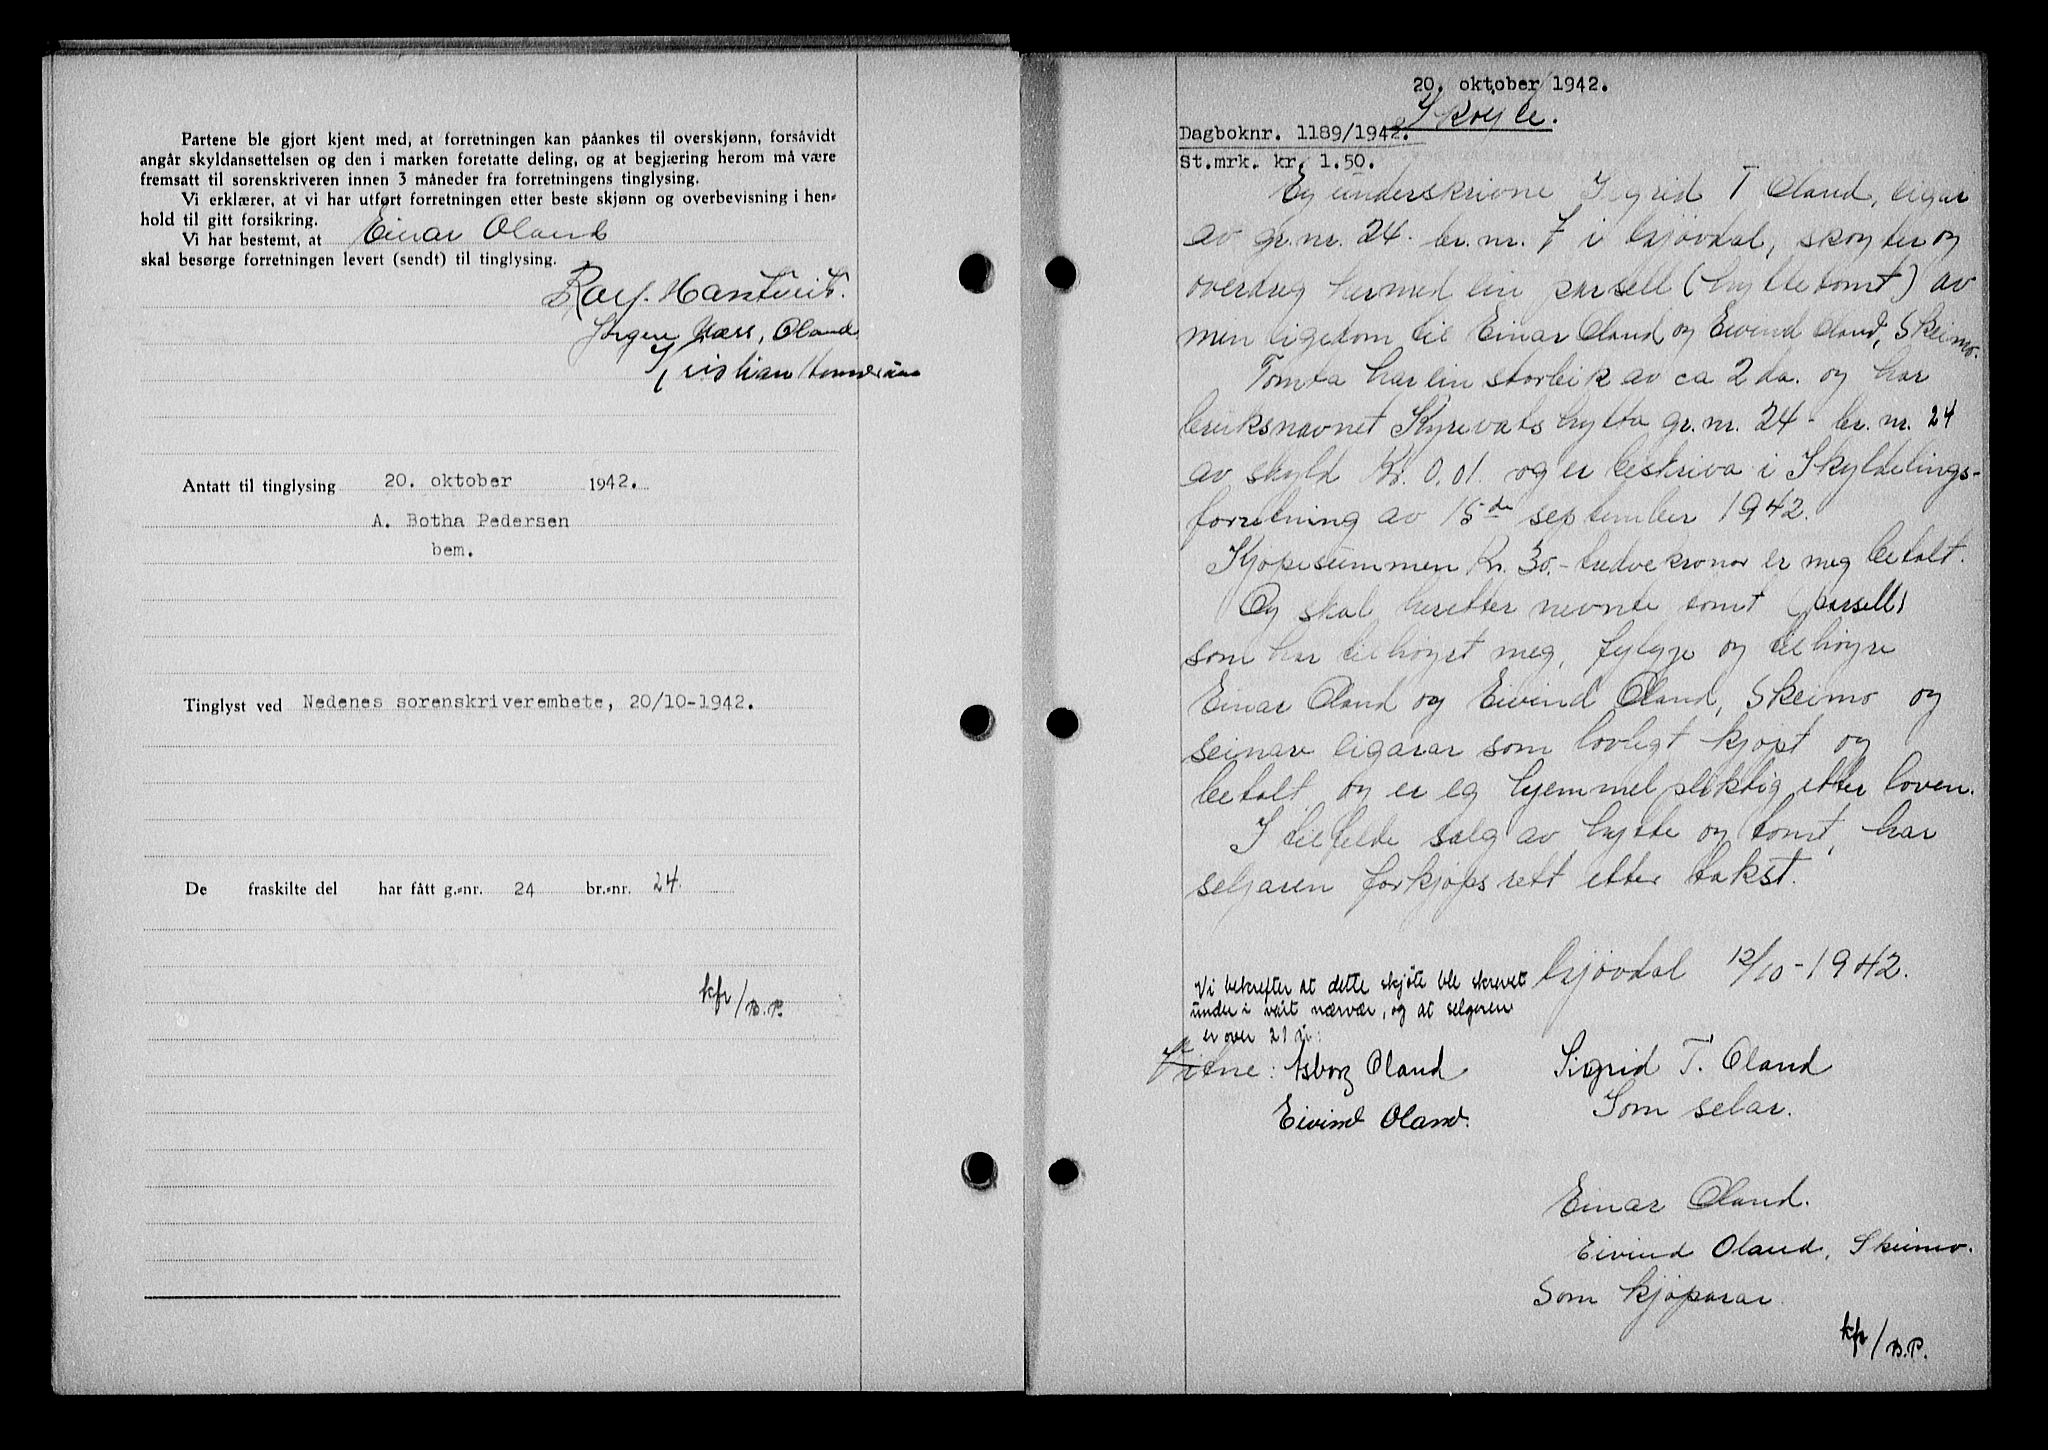 Partene ble gjort kjent med, at forretningen kan påankes til overskjønn, forsåvidt
angår skyldansettelsen og den i marken foretatte deling, og at begjæring herom må være
fremsatt til sorenskriveren innen 3 måneder fra forretningens tinglysing.
Vi erklærer, at vi har utført forretningen etter beste skjønn og overbevisning i hen-
hold til gitt forsikring.
Vi har bestemt, at Einar Oland
skal besørge forretningen levert (sendt) til tinglysing.
Jørgen Næss, Oland
Kristian
Antatt til tinglysing 20. oktober 1942.
A. Botha Pedersen
bem.
Tinglyst ved Nedenes sorenskriverembete, 20/10-1942.
De fraskilte del har fått g.-nr. 24 br.-nr. 24.
kfr/B.P.
20. oktober 1942.
Skøyte.
Dagboknr. 1189/1942.
St.mrk. kr. 1.50.
Eg underskrivne Sigrid T Oland, eigar
av gr.nr. 24 - br.nr. 7 i Gjøvdal, skøyter og
overdreg hermed ein parsell (hyttetomt) av
min eigedom til Einar Oland og Eivind Oland, Skeimo.
Tomta har ein storleik av ca 2 da. og har
bruksnavnet Kyrevatshytta gr.nr. 24 - br.nr. 24
av skyld Kr. 0,01. og er beskriva i Skyldelings-
forretning av 15de september 1942.
Kjøpesummen Kr. 30.- tredve kronor er meg betalt.
Og skal heretter nevnte tomt (parsell)
som har tilhøyrt meg, fylgje og tilhøyre
Einar Oland og Eivind Oland, Skeimo og
seinare eigarar som lovligt kjøpt og
betalt, og er eg hjemmel pliktig etter loven.
I tilfelde salg av hytte og tomt, har
seljaren forkjøpsrett etter takst.
Gjøvdal 12/10-1942.
Vi bekrefter at dette skjöte ble skrevet
under i vårt nærvær, og at selgeren
er over 21 år:
Vitne: Asborg Oland
Eivind Oland.
Sigrid T. Oland
Som selar.
Einar Oland.
Eivind Oland, Skeimo.
Som kjøparar.
kfr/B.P.